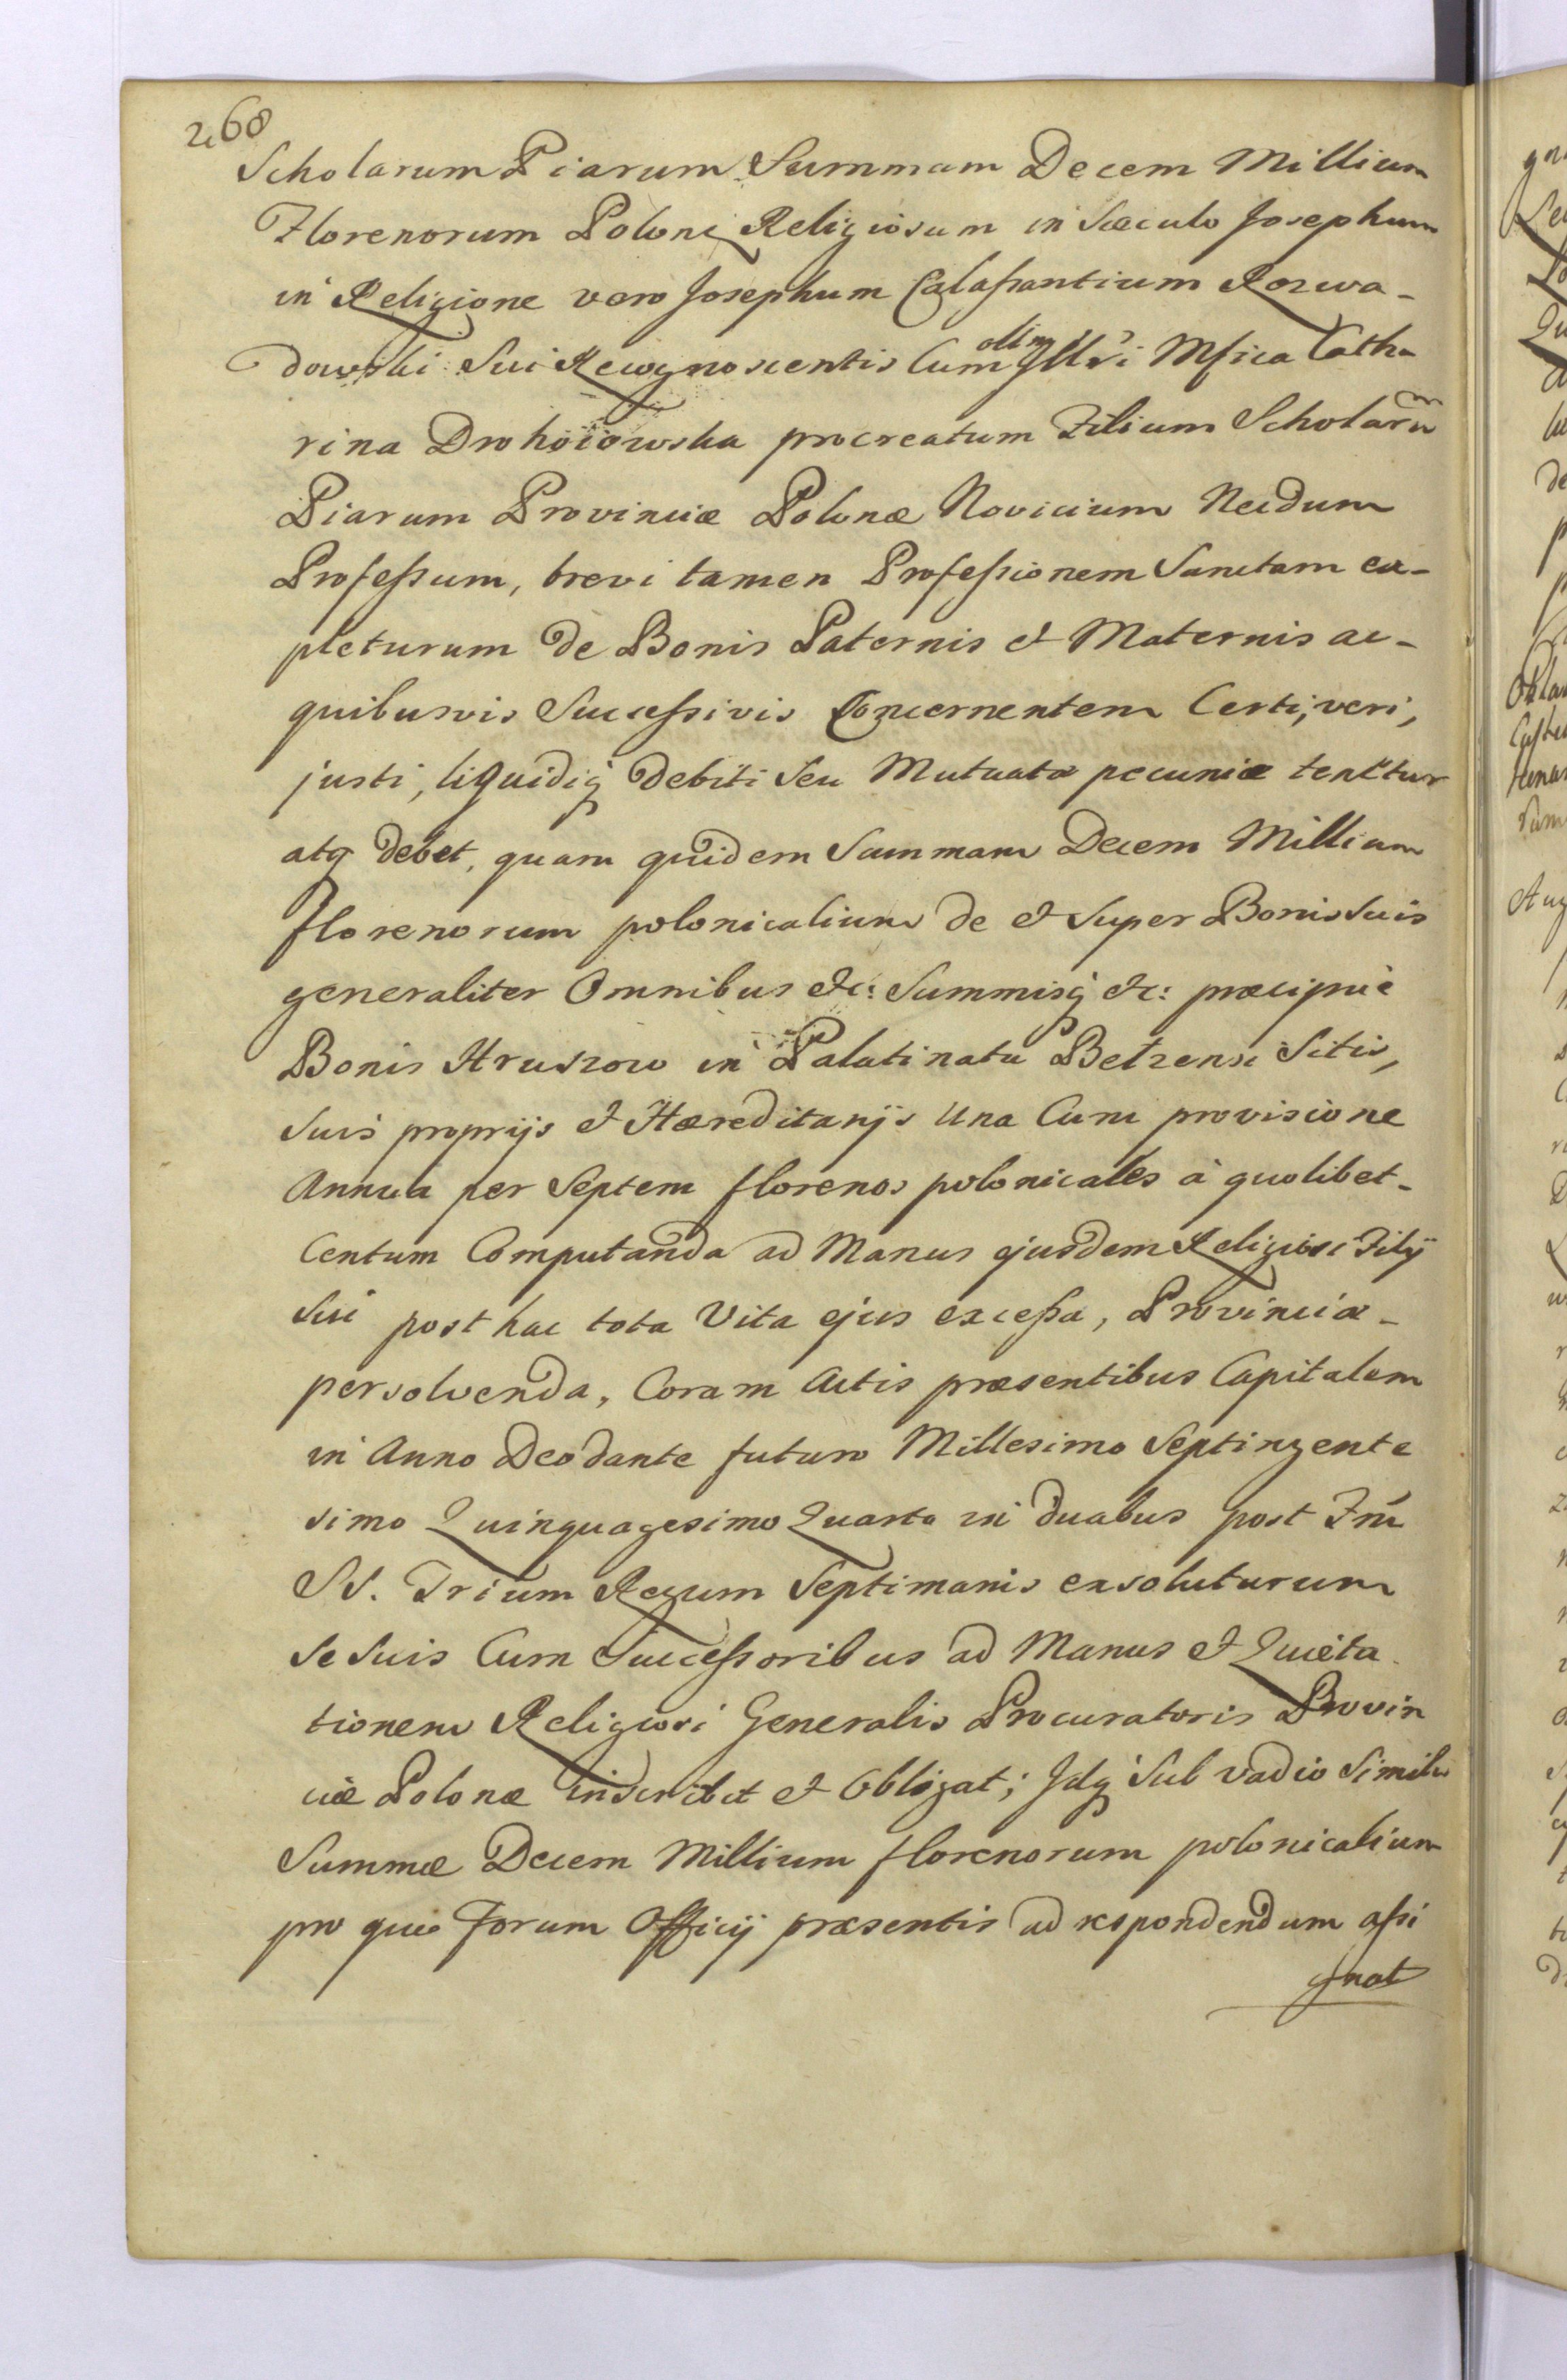 268
Scholarum Piarum Summam Decem Millium
Florenorum Poloni Religiosum in Sæculo Josephum
in Religione vero Josephum Calaßantium Rozwa-
dowski Sui Recognoscentis Cum olim Illri Mfica Catha
rina Drohoiowska procreatum Filium Scholarũ
Piarum Provinciæ Polonæ Novicium Necdum
Profeßum, brevi tamen Profeßionem Sanctam ex-
pleturum de Bonis Paternis et Maternis ac-
quibusvis Succeßivis Concernentem Certi, veri,
justi, liquidiq debiti Seu Mutuatæ pecuniæ tenetur
atq debet, quam quidem Summam Decem Millium
florenorum polonicalium de et Super Bonis Suis
generaliter Omnibus etc: Summisq etc: præcipuè
Bonis Hruszow in Palatinatu Belzensi Sitis,
Suis proprijs et Hæreditarijs Una Cum provisione
Annua per Septem florenos polonicales à quolibet-
Centum Computanda ad Manus ejusdem Religiosi Filij
Sui post hac tota Vita ejus exceßa, Provinciæ-
persolvenda, Coram Actis præsentibus Capitalem
in Anno Deo dante futuro Millesimo Septingente
simo Quinquagesimo Quarto in duabus post Fm̃
SS. Trium Regum Septimanis exsoluturum
Se Suis Cum Succeßoribus ad Manus et Quieta
tionem Religiosi Generalis Procuratoris Provin
ciæ Polonæ inscribit et Obligat; Idq Sub vadio Simili
Summæ Decem Millium florenorum polonicalium
pro quo Forum Officij præsentis ad respondendum aßi
gnat